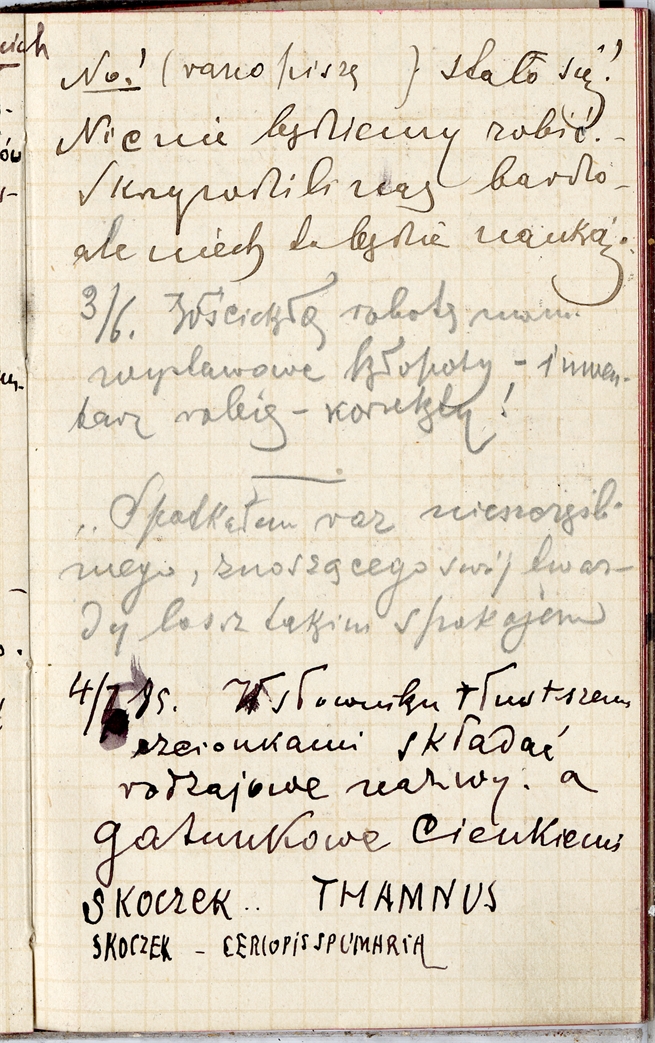 No! (rano piszę) stało się!
Nic nie będziemy robić. -
Skrzywdzili nas bardzo -
ale niech to będzie nauką.
3/6. Wściekłą robotę mam
wystawowe kłopoty - inwen-
tarz robię - korekty!
„Spotkałem raz
nego, znoszącego swój twar-
dy los z takim spokojem
4/ 95. W słowniku tłustszem
czcionkami składać
rodzajowe nazwy. a
gatunkowe cienkiemi
SKOCZEK .. THAMNUS
SKOCZEK - CERCOPIS SPUMARIA